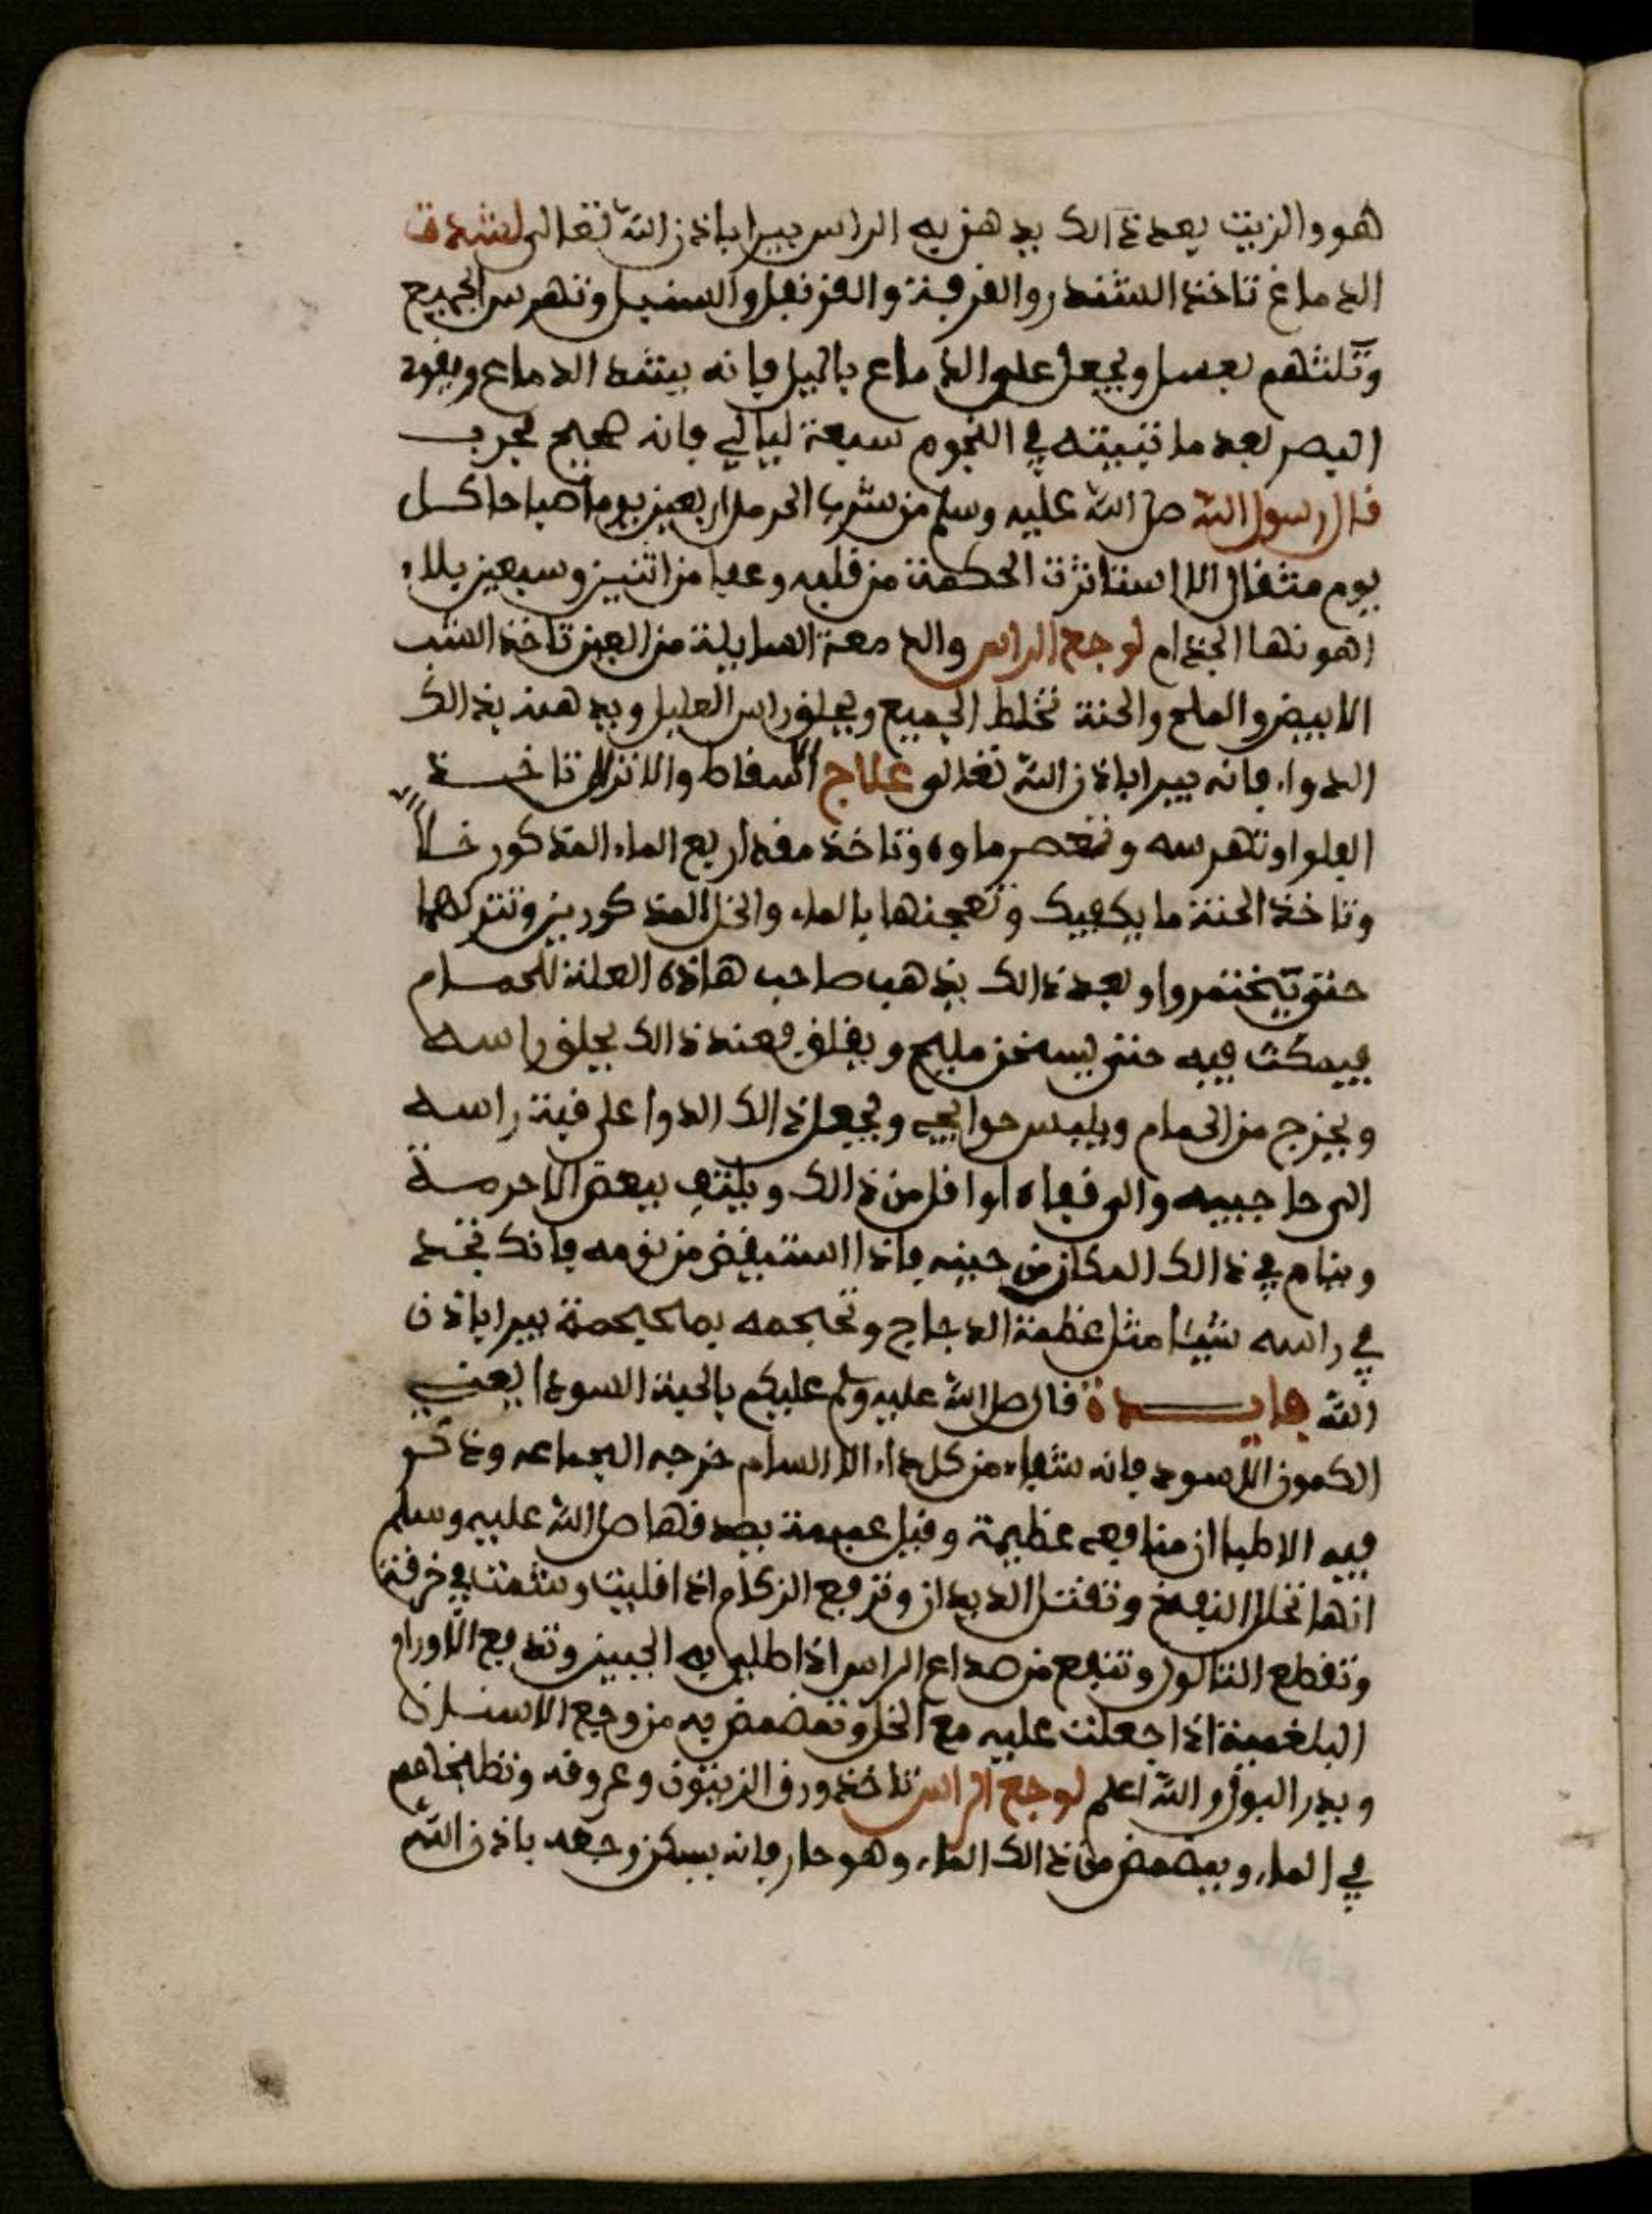 هو والزيت بعد ذالك يدهن به الراس يبرا باذن الله تعالى لشدة
الدماغ تاخذ السندر والقرفة والقرنفل والسنبل وتهرس الجميع
وتلتهم بعسل ويجعل على الدماغ باليل فانه يشد الدماغ ويقوي
البصر بعد ما تبيته في النجوم سبعة ليالي فانه صحيح مجرب
قال رسول الله صلى الله عليه وسلم من شرب الحرمل اربعين يوما صباحا كل
يوم مثقال الا استانرت الحكمة من قلبه وعفا من اثنين وسبعين بلاء
اهونها الجذام لوجع الراس والدمعة السايلة من العين تاخذ الشب
الابيض والملح والحنة تخلط الجميع ويحلق راس العليل ويدهنه بذالك
الدواء فانه يبرا باذن الله تعالى علاج السقاط والانزال تاخذ
الفلوا وتهرسه وتعصر ماوه وتاخذ مقدار ربع الماء المذكور خلا
وتاخذ الحنة ما يكفيك وتعجنها بالماء والخل المذكورين وتتركهما
حتى يختمروا وبعد ذالك يذهب صاحب هاذه العلة للحمام
فيمكث فيه حتى يسخن مليح ويقلق فعند ذالك يحلق راسه
ويخرج من الحمام ويلبس حوايجه ويجعل ذالك الدوا على قبة راسه
الى حاجبيه والى قفاه او اقل من ذالك ويلتف ببعض الاحرمة
وينام في ذالك المكان من حينه فاذا استيقض من نومه فانك تجد
في راسه شيئا مثل عظمة الدجاج وتحجمه بمحيحمة يبرا باذن
الله فايدة قال صلى الله عليه وسلم عليكم بالحبة السودا يعني
الكمون الاسود فانه شفاء من كل داء الا السام خرجه الجماعه وذكر
فيه الاطبا ان منافعه عظيمة وقيل عميمة بصدقها صلى الله عليه وسلم
انها تحلل النفخ وتقتل الديدان وترفع الزكام اذا قليت وشمت في خرقة
وتقطع الثالول وتنفع من صداع الراس اذا طلي به الجبين وتدفع الاورام
البلغمية اذا جعلت عليه مع الخل وتمضمض به من وجع الاسنان
ويدر البول والله اعلم لوجع الراس تاخذ ورق الزيتون وعروقه وتطبخاهم
في الماء ويمضمض من ذالك الماء وهو حار فانه يسكن وجعه باذن الله